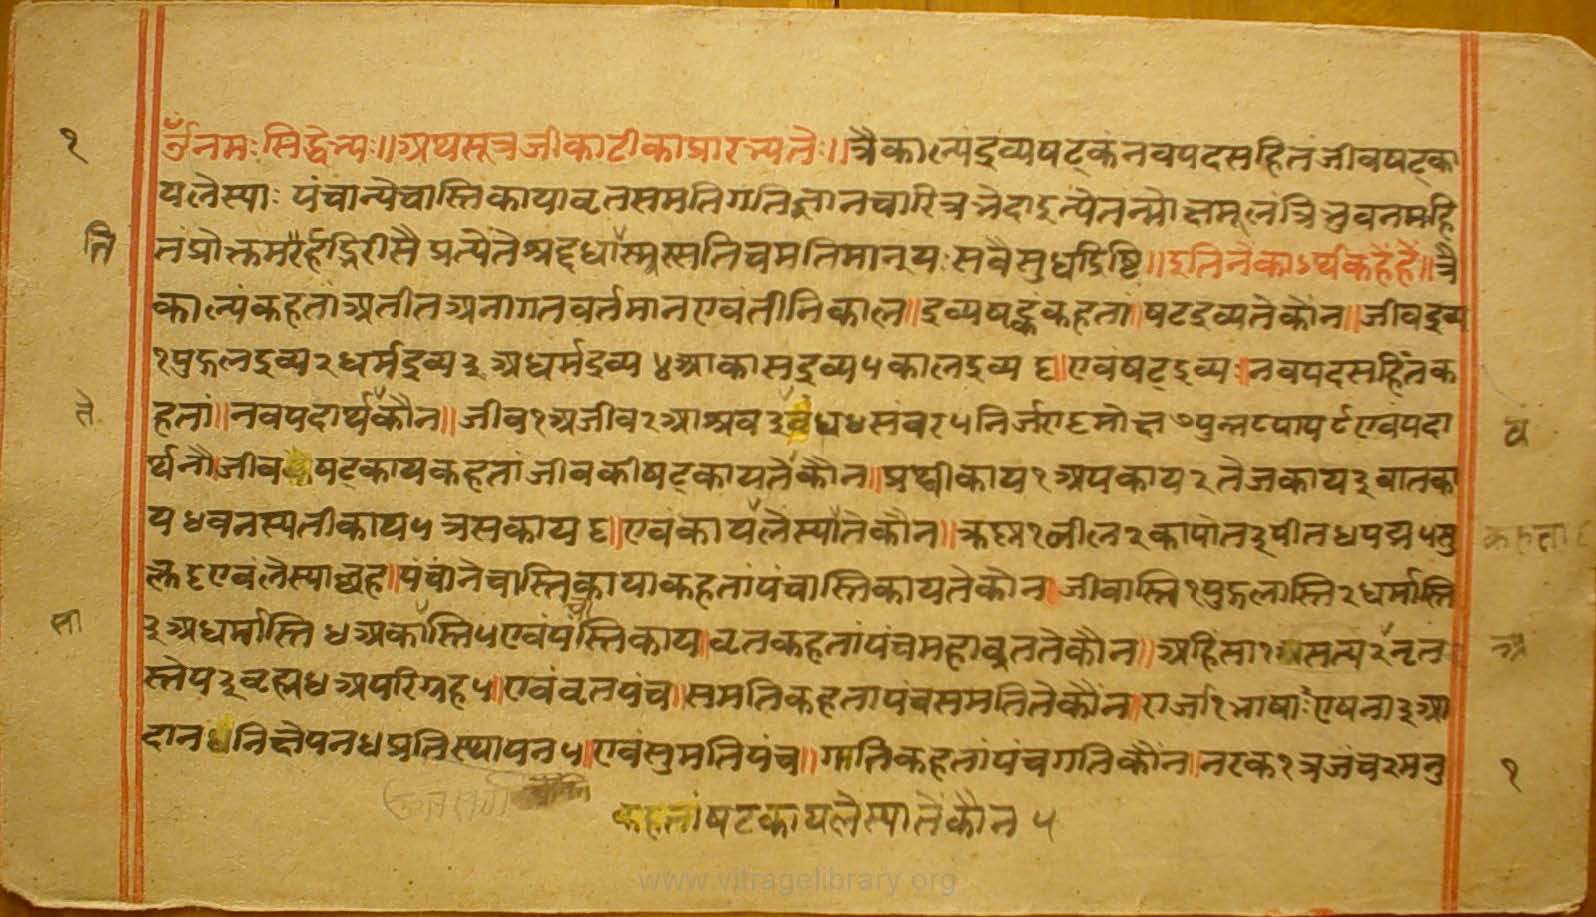 १
ॐ नमःसिद्धेभ्यः॥अथसूत्रजीकाटीकाप्रारभ्यतेः॥त्रैकाल्यंद्रव्यषट्कंनवपदसहितंजीवषट्का
यलेस्याः पंचान्येचास्तिकायावृतसमतिगतिज्ञानचारित्रभेदाइत्येतन्मोक्षमूलंत्रिभुवनमहि
ति
तंप्रोक्तमर्हद्भिरीसै प्रत्येतेश्रद्दधास्पृस्सतिचमतिमान्यःसवैसुधदिष्टि॥इतिनैकाऽर्थकहैहैं॥त्रै
काल्यंकहतांअतीतअनागतवर्तमानएवंतीनिकाल॥द्रव्यषट्ककहतां॥षटद्रव्यतेकौन॥जीवद्रव्य
१पुद्गलद्रव्य२धर्मद्रव्य३अधर्मद्रव्य४आकासद्रव्य५कालद्रव्य६॥एवंषट्द्रव्यः॥नवपदसहितंक
ते
हतां॥नवपदार्थकौन॥जीव१अजीव२आश्रव३बंध४संवर५निर्जरा६मोक्ष७पुन्न८पाप९एवपदा
व
र्थनौ॥जीवषट्कायकहतांजीवकीषट्कायतेकौन॥प्रथ्वीकाय१अपकाय२तेजकाय३वातका
य४वनस्पतीकाय५त्रसकाय६॥एवंकायलेस्यातेकौन॥क्रष्ण१नील२कापोत३पीत४पद्म५सु
कहता
क्ल६एवंलेस्याछह॥पंचांनेचास्तिकायाकहतांपंचास्तिकायतेकौन॥जीवास्ति१पुद्गलास्ति२धर्मास्ति
सा
३अधर्मास्ति४अकास्ति५एवंपंचास्तिकाय॥वृतकहतांपंचमहावृततेकौन॥अहिंसा१सत्य२नृत
स्तेय३वृह्म४अपरिग्रह५॥एवंवृतपंच॥समतिकहतापंचसमतितेकौन॥एर्जा१भाषा२एषना३आ
दाननिक्षेपन४प्रतिस्थापन५॥एवंसुमतिपंच॥गतिकहतांपंचगतिकौन॥नरक१त्रजंच२मनु
१
कहतांषटकायलेस्यातेकौन ५
www.vitragelibrary.org